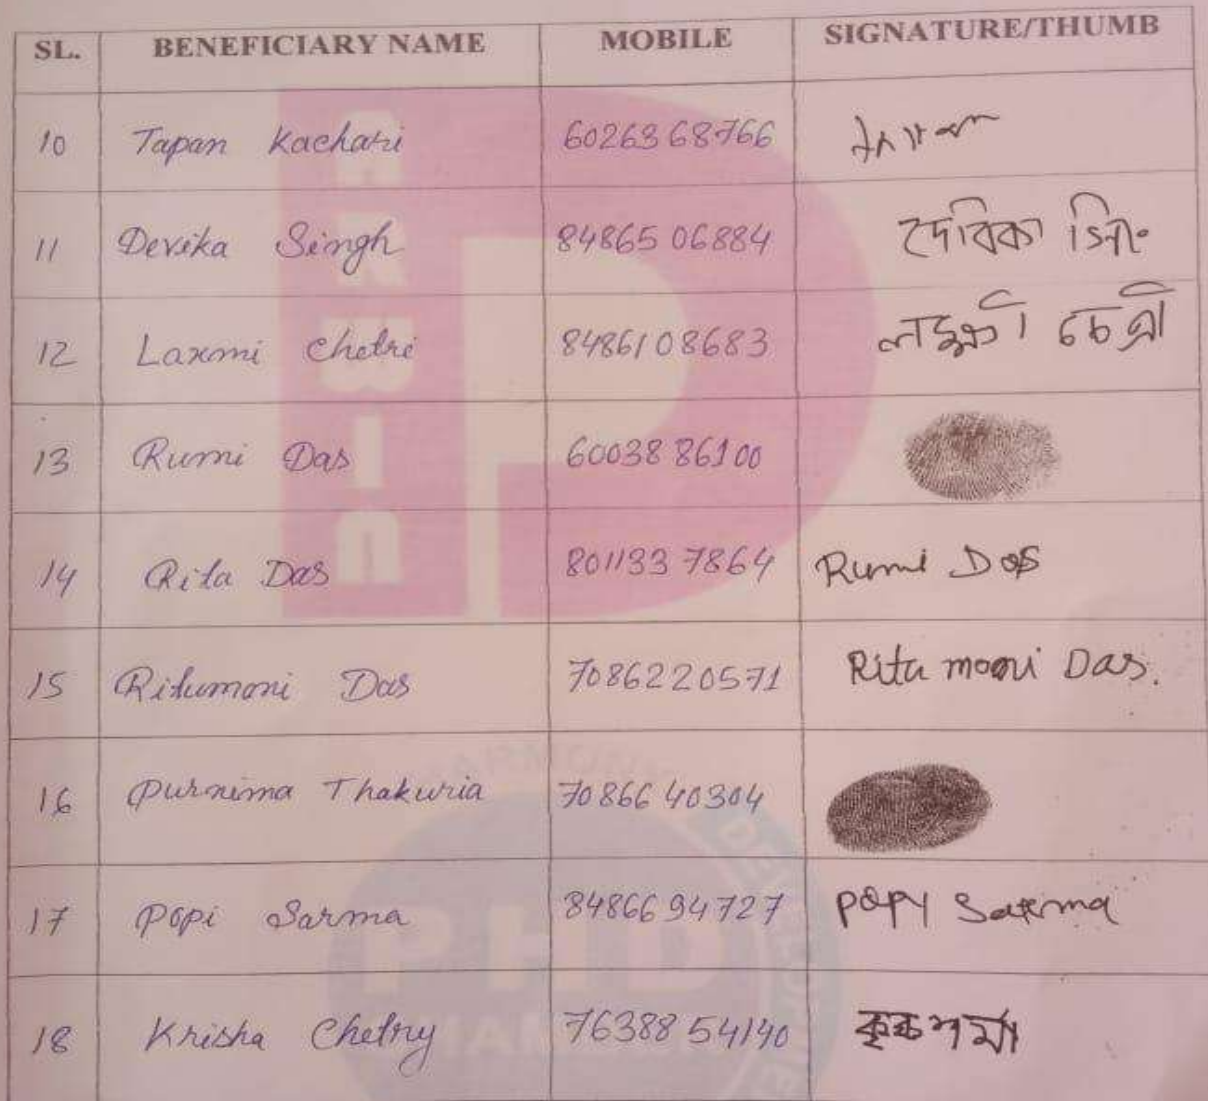 SL. BENEFICIARY NAME MOBILE SIGNATURE/THUMB
10 Tapan Kachari 6026368766
11 Devika Singh 84865 06884 দেৱিকা সিং
12 Laxmi Chetri 8486108683 লক্ষ্মী চেত্ৰী
13 Rumi Das 60038 86100
14 Rita Das 801133 7864 Rumi Das
15 Ritumoni Das 7086220571 Rita moni Das.
16 Purnima Thakuria 70866 40304
17 Popi Sarma 84866 94727 POPY Sarma
18 Krisha Chetry 76388 54140
HARMONY
DEVELOPME
PHD